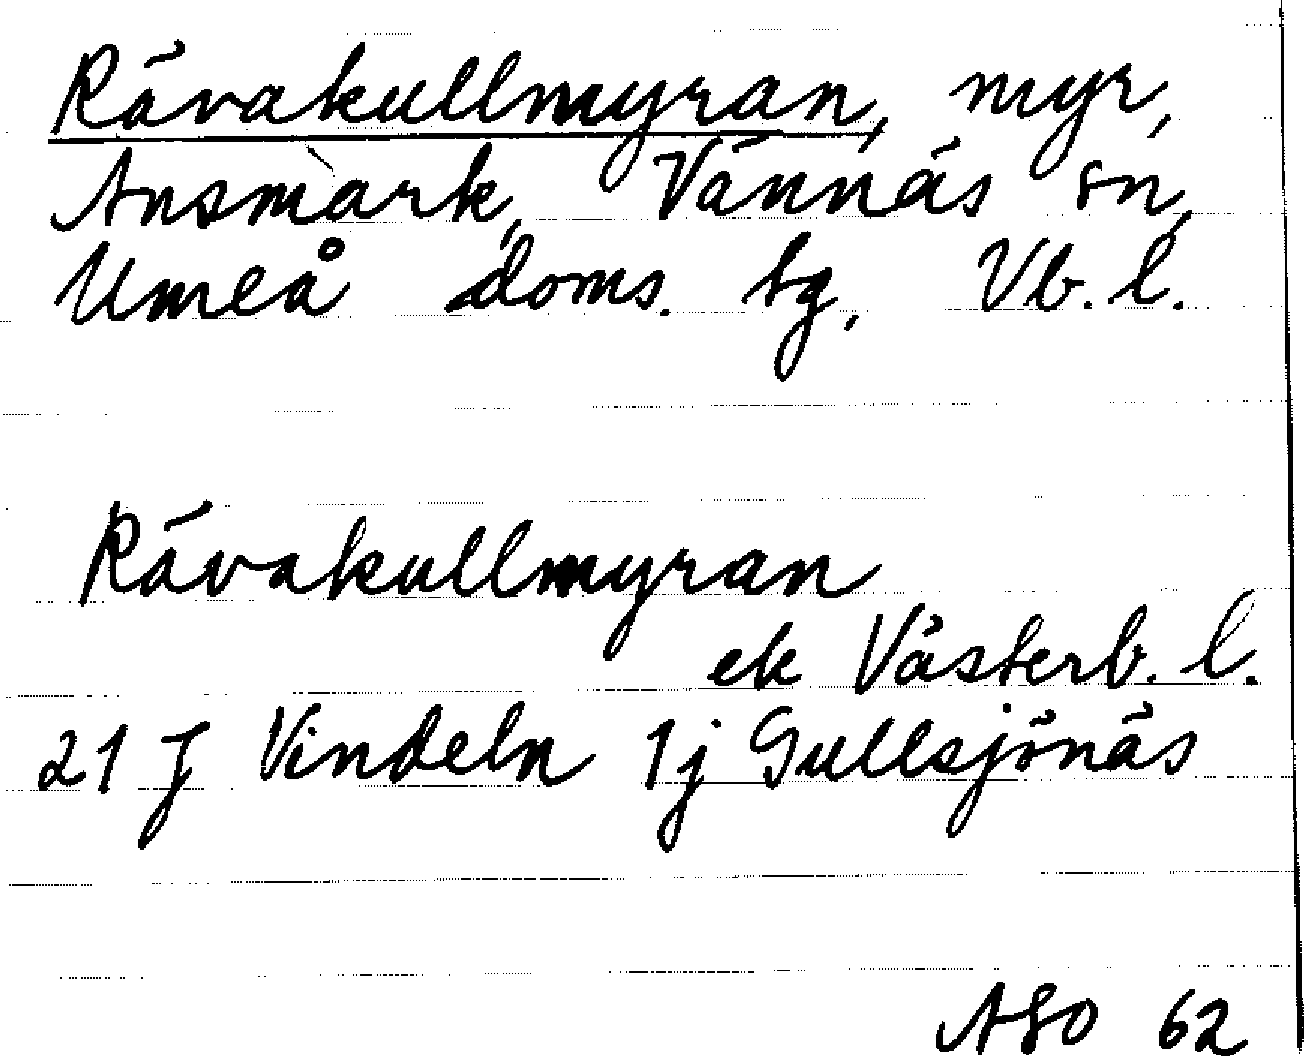 Rävakullmyran, myr,
Ansmark, Vännäs sn,
Umeå doms. tg, Vb. l.
Rävakullmyran
ek Västerb. l.
21 J Vindeln 1j Gullsjönäs
ASO 62